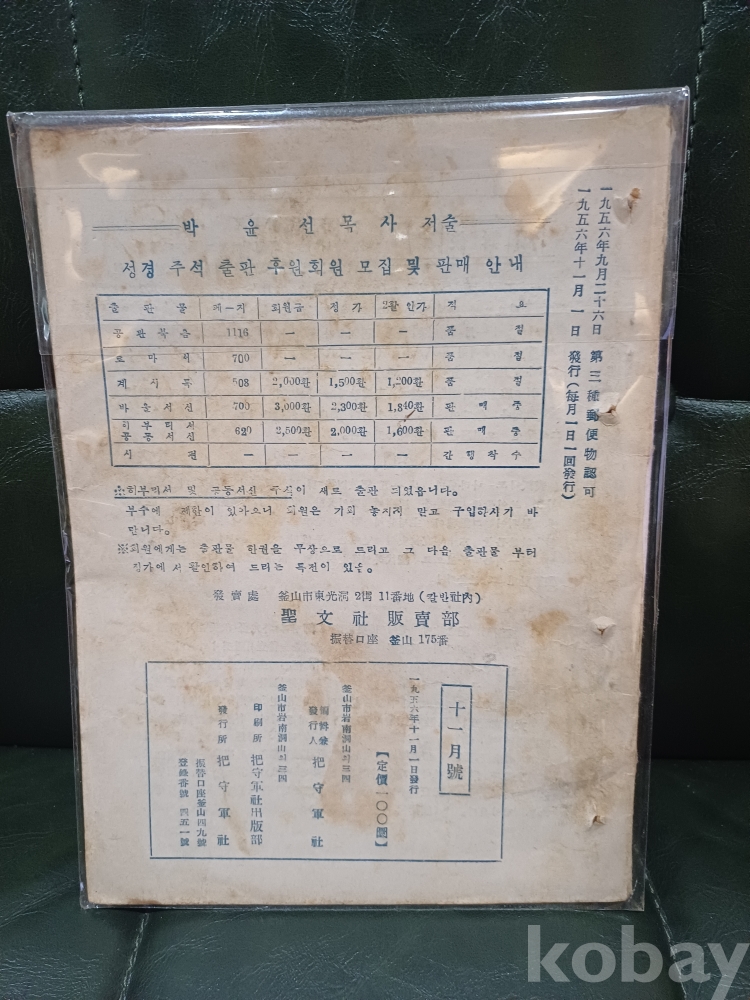 박윤선목사 저술
성경 주석 출판 후원회원 모집 및 판매 안내
출판물 페-지 회원금 정가 2활인가 적요
공관복음 1116 — — — 품절
로마서 700 — — — 품절
계시록 508 2,000환 1,500환 1,200환 품절
바울서신 700 3,000환 2,300환 1,840환 판매중
히부리서 공동서신 620 2,500환 2,000환 1,600환 판매중
시편 — — — — 간행착수
※히부리서 및 공동서신 주석이 새로 출판 되었읍니다.
부수에 제한이 있아오니 회원은 기회 놓치지 말고 구입하시기 바
랍니다。
※회원에게는 출판물 한권을 무상으로 드리고 그 다음 출판물 부터
정가에서 활인하여 드리는 특전이 있음。
發賣處 釜山市東光洞 2街 11番地 (칼빈社內)
聖文社販賣部
振替口座 釜山 175番
一九五六年九月二十六日 第三種郵便物認可
一九五六年十一月一日 發行(每月一日一回發行)
十一月號
一九五六年十一月一日發行
【定價一〇〇圜】
釜山市岩南洞山
編輯兼發行人 把守軍社
釜山市岩南洞山
印刷所 把守軍社出版部
發行所 把守軍社
振替口座釜山四九號
登錄番號 四五一號
kobay